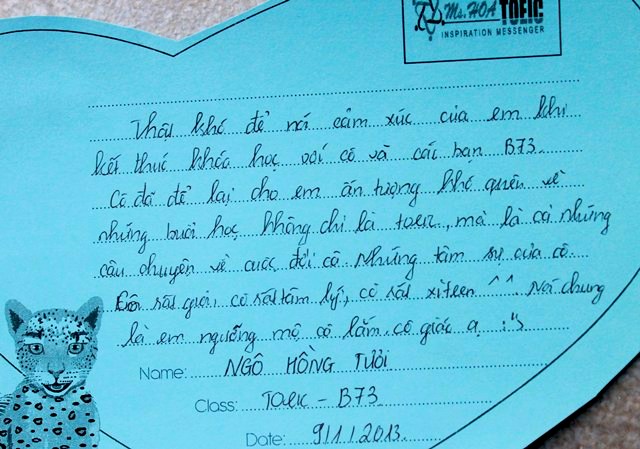 Ms. HOA TOEIC
INSPIRATION MESSENGER
Thật khó để nói cảm xúc của em khi
kết thúc khóa học với cô và các bạn B73.
Cô đã để lại cho em ấn tượng khó quên về
những buổi học không chỉ là toeic, mà là cả những
câu chuyện về cuộc đời cô. Những tâm sự của cô.
Cô rất giỏi, cô rất tâm lý, cô rất xì teen ^^. Nói chung
là em ngưỡng mộ cô lắm cô giáo ạ :"3
Name: NGÔ HỒNG TƯƠI
Class: TOEIC - B73
Date: 9/1/2013